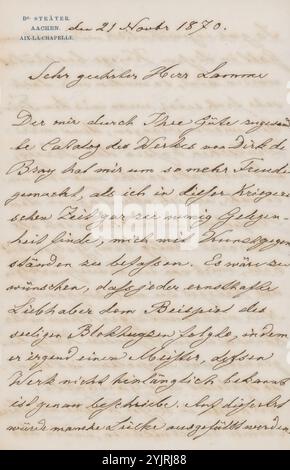 Dr. STRÄTER.
AACHEN.
AIX-LA-CHAPELLE.
den 21 Novbr 1870.
Sehr geehrter Herr Lamme
Der mir durch Ihre Güte zugesand
te Catalog des Werkes von Dirk de
Bray hat mir um so mehr Freude
gemacht, als ich in dieser kriegeri
schen Zeit gar zu wenig Gelegen
heit finde, mich mit Kunstgegen
ständen zu befassen. Es wäre zu
wünschen, dass jeder ernsthafte
Liebhaber dem Beispiel des
seeligen Blokhuyzen folgte, indem
er irgend einen Meister, dessen
Werk nicht hinlänglich bekannt
ist genau beschriebe. Auf diese Art
würde manche Lücke ausgefüllt werden
alamy
Image ID: 2WJRJ88
www.alamy.com